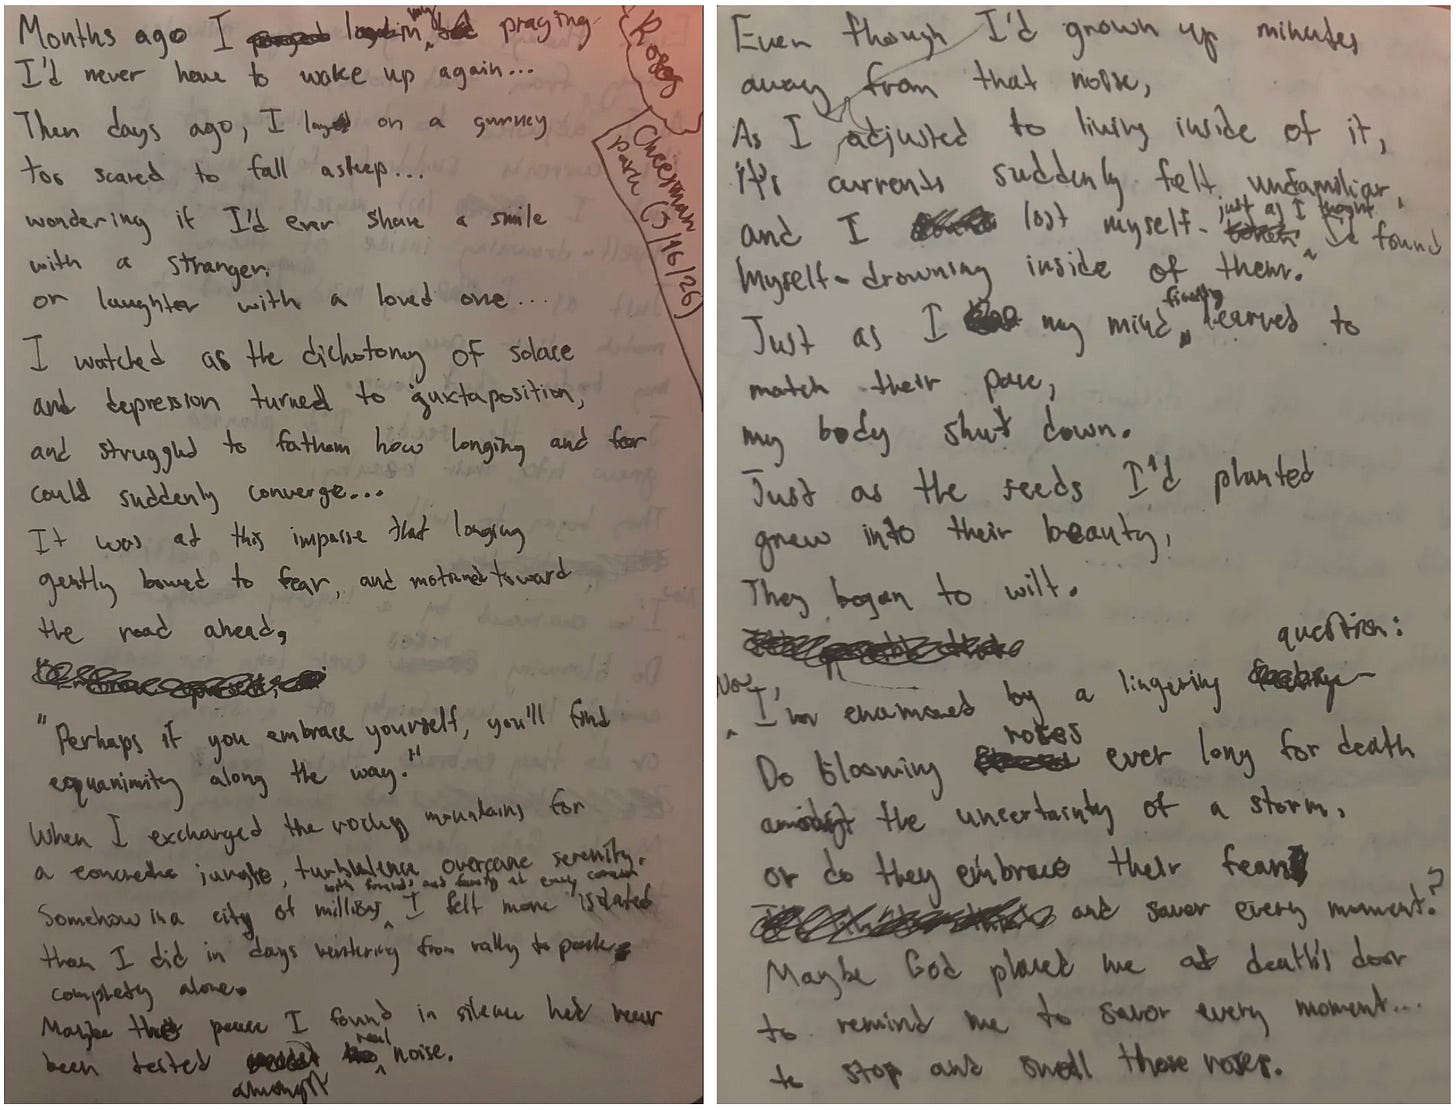 Roses
Cheesman
Park (3/16/26)
Months ago I lay in my bed praying
I'd never have to wake up again...
Then days ago, I lay on a gurney
too scared to fall asleep...
wondering if I'd ever share a smile
with a stranger.
or laughter with a loved one...
I watched as the dichotomy of solace
and depression turned to juxtaposition,
and struggled to fathom how longing and fear
could suddenly converge...
It was at this impasse that longing
gently bowed to fear, and motioned toward
the road ahead,
"Perhaps if you embrace yourself, you'll find
equanimity along the way."
When I exchanged the rocky mountains for
a concrete jungle, turbulence overcame serenity.
Somehow in a city of millions with friends and family at every corner I felt more isolated
than I did in days venturing from valley to peak
completely alone.
Maybe the peace I found in silence had never
been tested amongst real noise.
Even though I'd grown up minutes
away from that noise,
As I adjusted to living inside of it,
it's currents suddenly felt unfamiliar,
and I lost myself- just as I thought I'd found
myself- drowning inside of them.
Just as my mind finally learned to
match their pace,
my body shut down.
Just as the seeds I'd planted
grew into their beauty,
They began to wilt.
Now, I'm enamored by a lingering question:
Do blooming roses ever long for death
amidst the uncertainty of a storm,
or do they embrace their fear
and savor every moment?
Maybe God placed me at death's door
to remind me to savor every moment...
to stop and smell those roses.